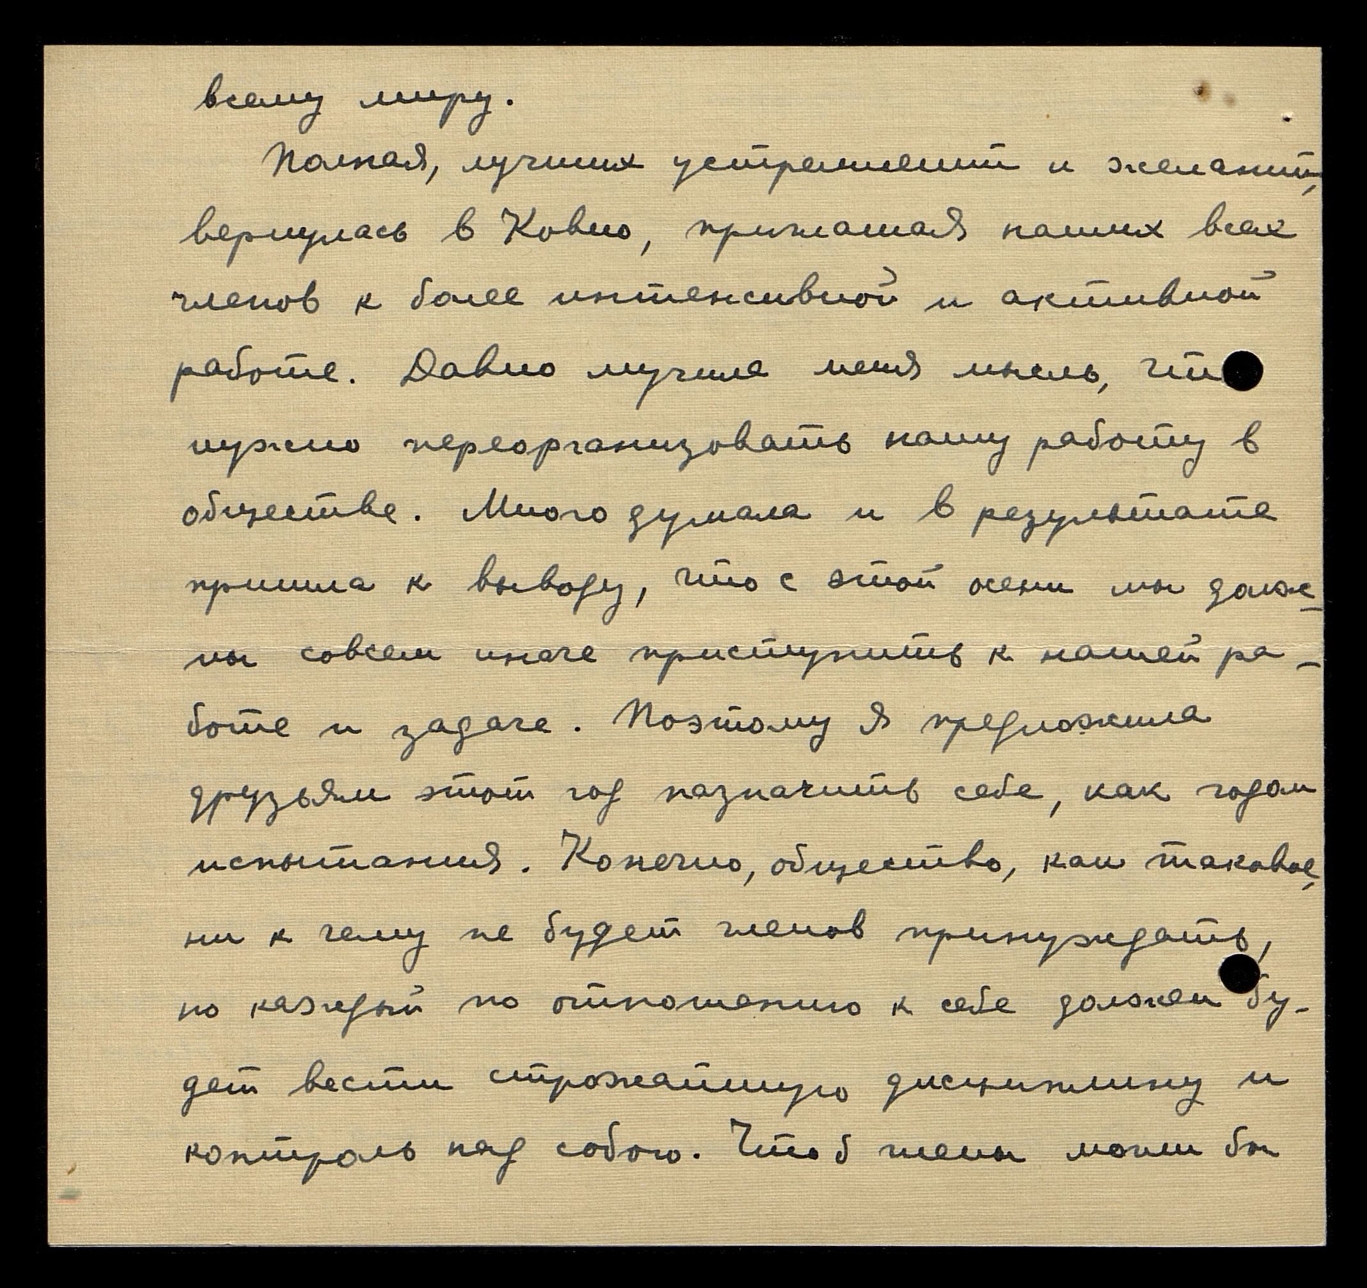 всему миру.
Полная, лучших устремлений и желаний,
вернулась в Ковно, приглашая наших всех
членов к более интенсивной и активной
работе. Давно мучила меня мысль, что
нужно переорганизовать нашу работу в
обществе. Много думала и в результате
пришла к выводу, что с этой осени мы долж-
ны совсем иначе приступить к нашей ра-
боте и задаче. Поэтому я предложила
друзьям этот год назначить себе, как годом
испытания. Конечно, общество, как таковое,
ни к чему не будет членов принуждать,
но каждый по отношению к себе должен бу-
дет вести строжайшую дисциплину и
контроль над собою. Чтоб члены могли бы